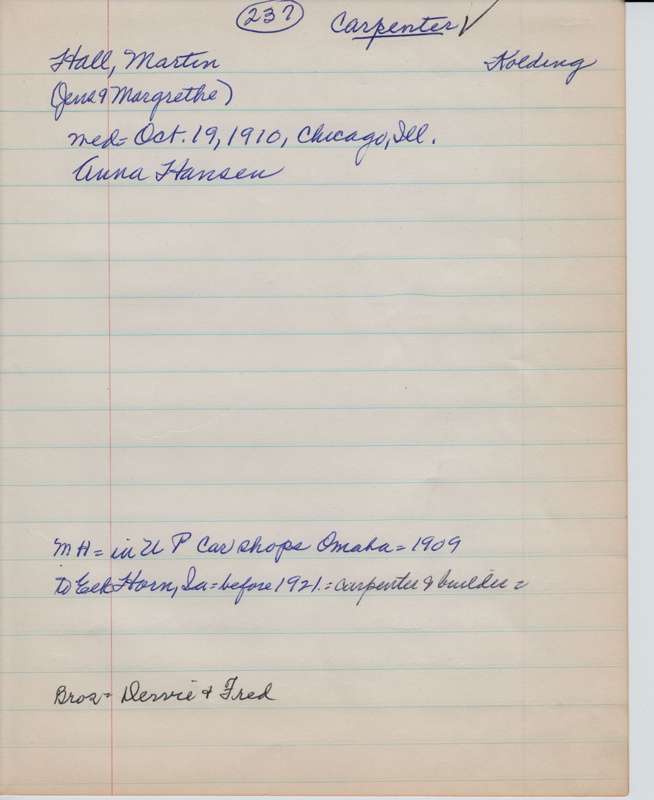 237 Carpenter ✓
Hall, Martin Kolding
(Jens & Margrethe)
med = Oct. 19, 1910, Chicago, Ill.
Anna Hansen
MH = in U P Car shops Omaha = 1909
to Elk Horn, Ia = before 1921. = carpenter & builder =
Bros =  & Fred